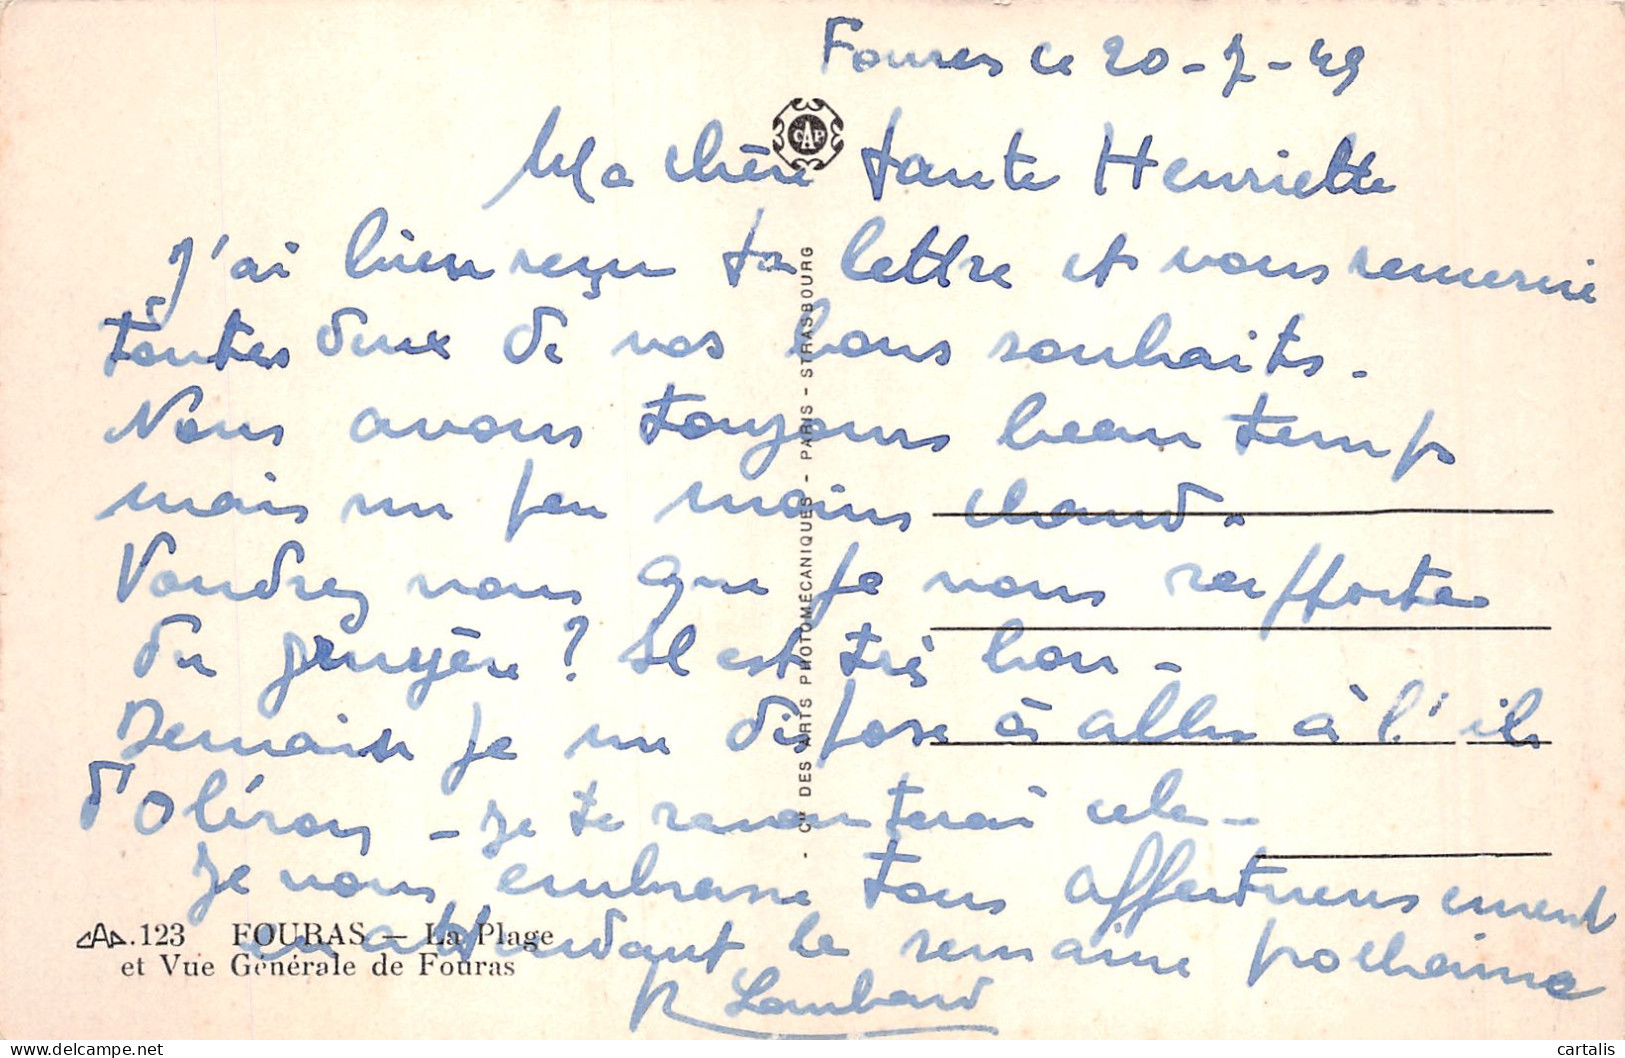 Fouras le 20-7-49
CAP
Ma chère tante Henriette
J'ai bien reçu ta lettre et vous remercie
toutes deux de vos bons souhaits.
Nous avons toujours beau temps
mais un peu moins chaud.
Voudrez vous que je vous rapporte
du gruyère ? Il est très bon -
Demain je me dispose à aller à l'île
d'Oléron - je te raconterai cela -
Je vous embrasse tous affectueusement
en attendant la semaine prochaine
R Lombard
CAP.123 FOURAS — La Plage
et Vue Générale de Fouras
- Cie DES ARTS PHOTOMÉCANIQUES - PARIS - STRASBOURG
cartalis